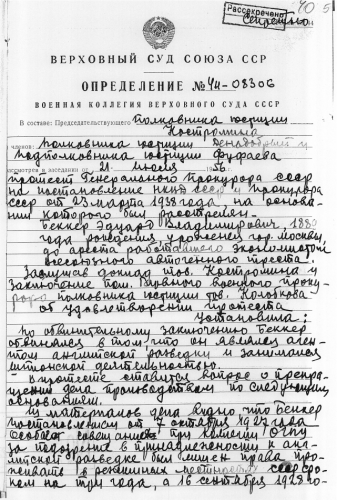 Рассекречено
Секретно
ВЕРХОВНЫЙ СУД СОЮЗА ССР
ОПРЕДЕЛЕНИЕ № 4н-08306
ВОЕННАЯ КОЛЛЕГИЯ ВЕРХОВНОГО СУДА СССР
В составе: Председательствующего полковника юстиции
Костромина
членов: полковника юстиции и
подполковника юстиции Фуфаева
рассмотрев в заседании от 21 июля 56
протест Генерального Прокурора СССР
на постановление НКВД СССР и Прокурора
СССР от 23 марта 1938 года, на основа
нии которого был расстрелян
Беккер Эдуард Владимирович, 1880
года рождения уроженец гор. Москвы
до ареста работавший экономистом
Всесоюзного автогенного треста.
Заслушав доклад тов. Костромина и
заключение пом. Главного военного проку
рора полковника юстиции тов.
об удовлетворении протеста
Установила:
По обвинительному заключению Беккер
обвинялся в том что он являлся аген
том английской разведки и занимался
шпионской деятельностью.
В протесте ставится вопрос о прекра
щении дела производством по следующим
основаниям.
Из материалов дела видно, что Беккер
постановлением от 7 октября 1927 года
Особого совещания при коллегии ОГПУ
за подозрение в принадлежности к анг
лийской разведке был лишен права про
живать в режимных местностях СССР сро
ком на три года, а 16 сентября 1928 го